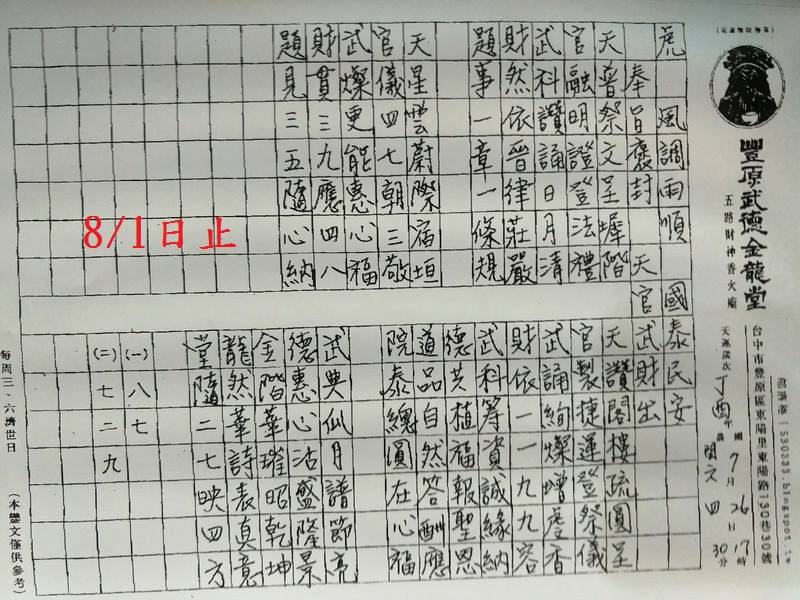 豐原武德金龍堂
五路財神香火廟
台中市豐原區東陽里東陽路130巷30號
部落格 1530333.blogspot.tw
天運歲次丁酉年 國7月26日17時30分
農閏六 四
虎風調雨順
國泰民安
奉旨褒封
天官武財出
天普祭文呈墀階
官融明證登法禮
武科讚誦日月清
財然依晉律莊嚴
題事一章一條規
天星雲蔚際宿垣
官儀四七朝三敬
武燦更能惠心福
財貫三九應四八
題見三五隨心納
天讚閣樓疏圓呈
官製捷運登祭儀
武誦絢燦增虔香
財依一一九九容
武科籌資誠緣納
德共植福報聖恩
道品自然答酬應
院泰總圓在心福
武典仙月譜節亮
德惠心沽盛隆景
金階華璀昭乾坤
龍然華詩表真意
堂隨二七映四方
(一)八七
(二)七二九
8/1日止
每周三、六濟世日
(本鸞文僅供參考)